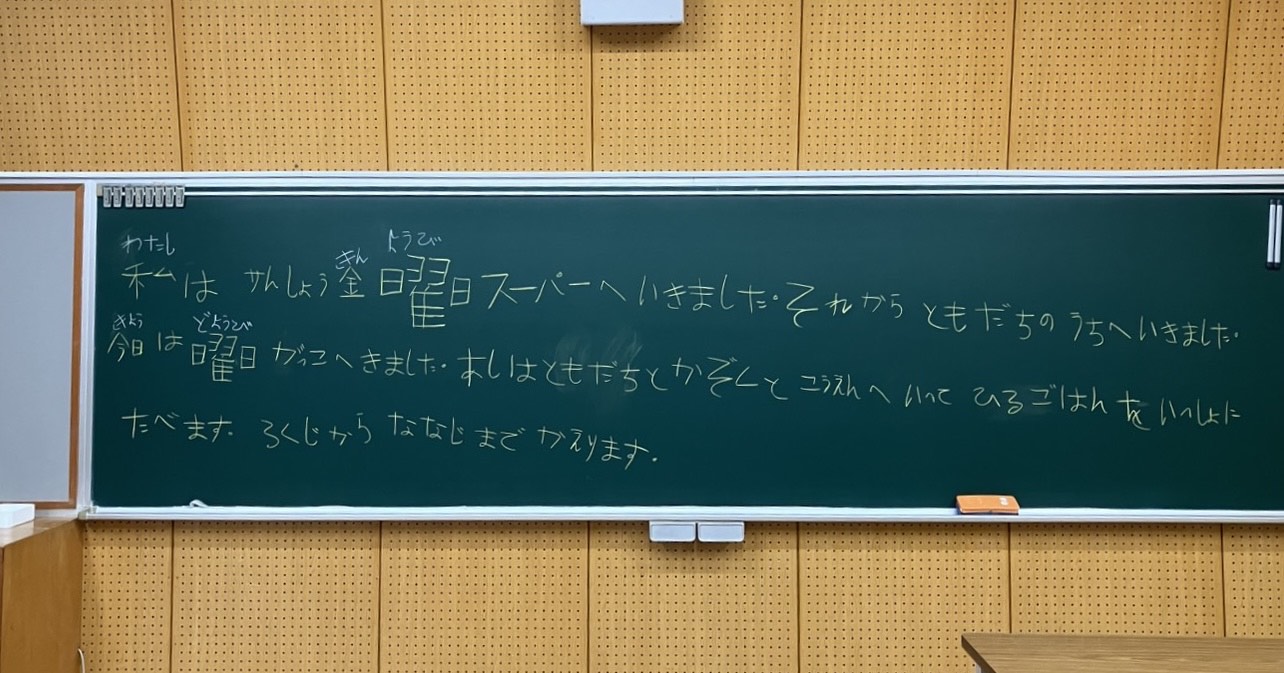 わたし きん ようび
私は せんしょう 金曜日スーパーへ いきました。それから ともだちの うちへいきました。
きょう どようび
今日は 曜日 がっこへきました。ともだちとかぞくと こうえんへ いって ひるごはんを いっしょに
たべます。ろくじから ななじまで かえります。